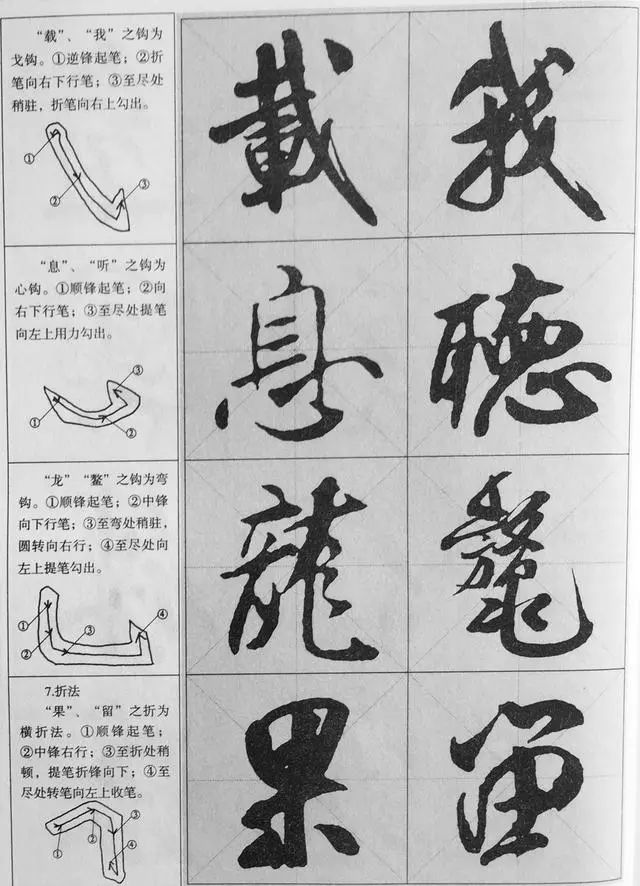 “载”、“我”之钩为
戈钩。①逆锋起笔；②折
笔向右下行笔；③至尽处
稍驻，折笔向右上勾出。
①
②
③
載 我
“息”、“听”之钩为
心钩。①顺锋起笔；②向
右下行笔；③至尽处提笔
向左上用力勾出。
③
①
②
息 聽
“龙”“鳌”之钩为弯
钩。①顺锋起笔；②中锋
向下行笔；③至弯处稍驻，
圆转向右行；④至尽处向
左上提笔勾出。
①
④
②
③
龍 鼇
7.折法
“果”、“留”之折为
横折法。①顺锋起笔；
②中锋右行；③至折处稍
顿，提笔折锋向下；④至
尽处转笔向左上收笔。
①
②
③
④
果 留